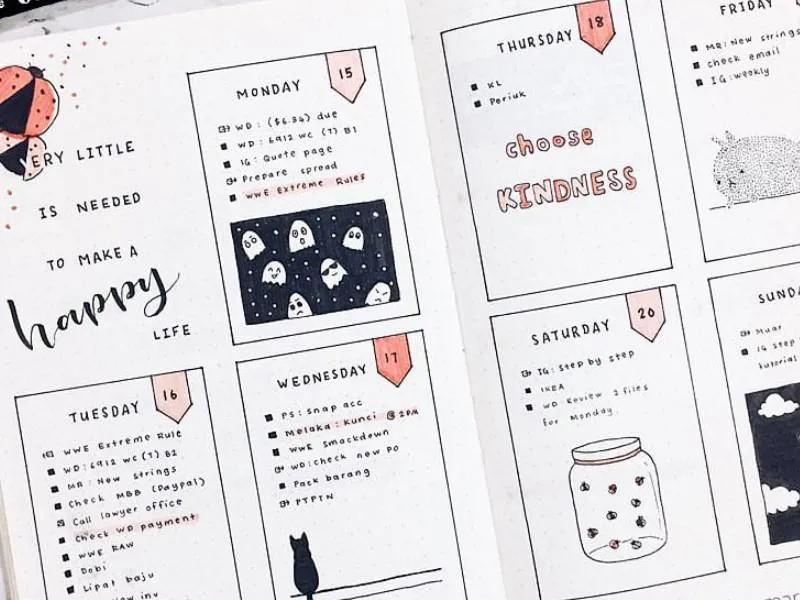 VERY LITTLE
IS NEEDED
TO MAKE A
happy
LIFE
MONDAY
15
WD: ($6.36) due
WD: 6912 wc (T) B1
IG: Quote page
Prepare spread
WWE Extreme Rules
TUESDAY
16
WWE Extreme Rule
WD: 6912 wc (T) B2
MR: New strings
Check MBB (PayPal)
Call lawyer office
Check WD payment
WWE RAW
Dobi
Lipat baju
inv
WEDNESDAY
17
PS: snap acc
Melaka: Kunci @ 2PM
WWE Smackdown
WD: check new PO
Pack barang
PTPTN
THURSDAY
18
KL
Periuk
choose
KINDNESS
FRIDAY
MR: New strings
Check email
IG: weekly
SATURDAY
20
IG: Step by step
IKEA
WD: Review 2 files
for Monday.
SUNDA
Muar
IG step
tutorial